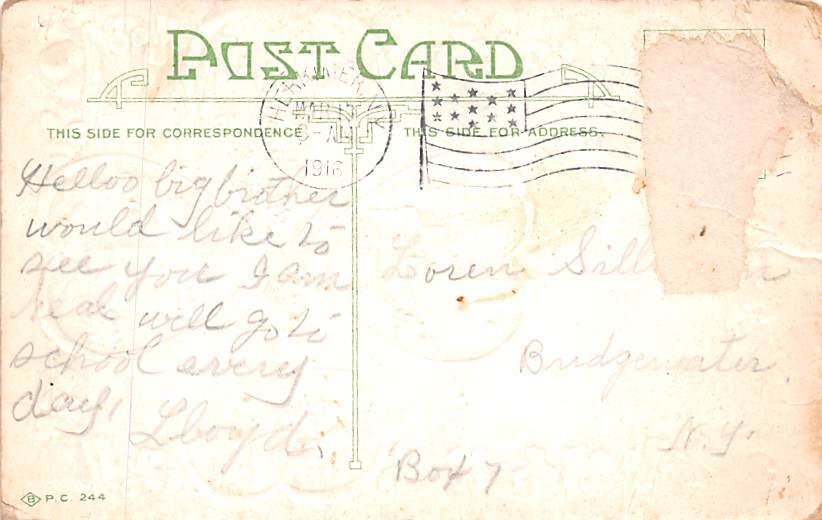 POST CARD
HERKIMER, N.Y.
MAR
A
1916
THIS SIDE FOR CORRESPONDENCE
THIS SIDE FOR ADDRESS.
Helloo big brother
would like to
see you I am
real will go to
school every
day,
Lloyd.
Loren
Bridgewater,
N.Y.
Box 7
B P.C. 244